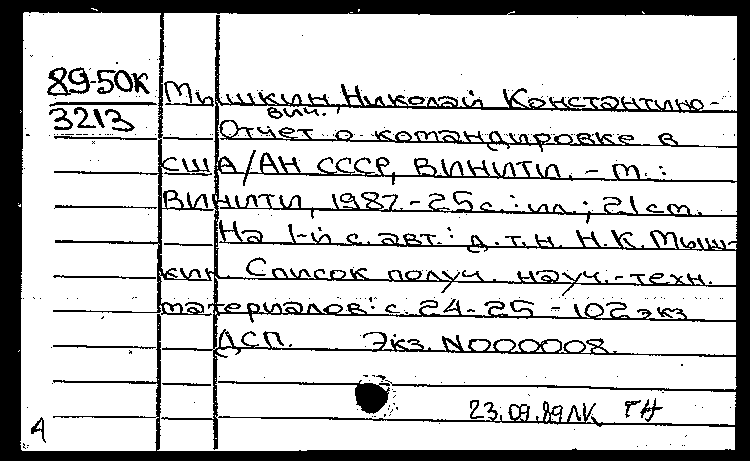 89-50К
3213
Мышкин, Николай Константино-
вич.
Отчет о командировке в
США/АН СССР, ВИНИТИ. - М.:
ВИНИТИ, 1987. - 25 с.: ил.; 21 см.
На 1-й с. авт.: д.т.н. Н.К. Мыш-
кин. Список получ. науч.-техн.
материалов: с. 24-25 - 102 экз
ДСП. Экз. N000008.
23.09.89 ЛК ГН
А